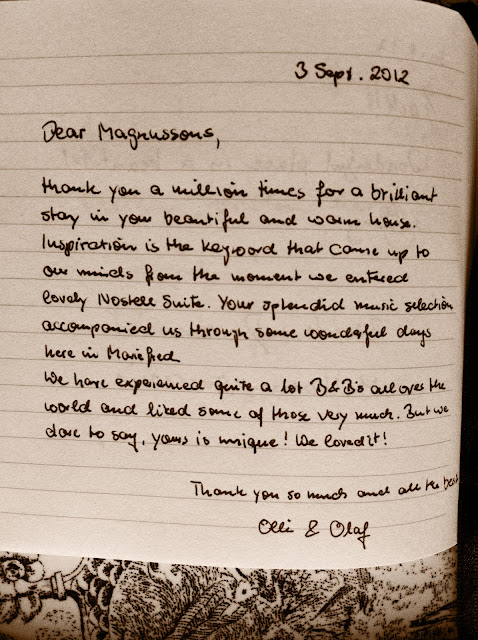 3 Sept. 2012
Dear Magnussons,
thank you a million times for a brilliant
stay in your beautiful and warm house.
Inspiration is the keyword that came up to
our minds from the moment we entered
lovely Nostell Suite. Your splendid music selection
accompanied us through some wonderful days
here in Mariefred
We have experienced quite a lot B&B's all over the
world and liked some of those very much. But we
dare to say, yours is unique! We loved it!
Thank you so much and all the best
Olli & Olaf